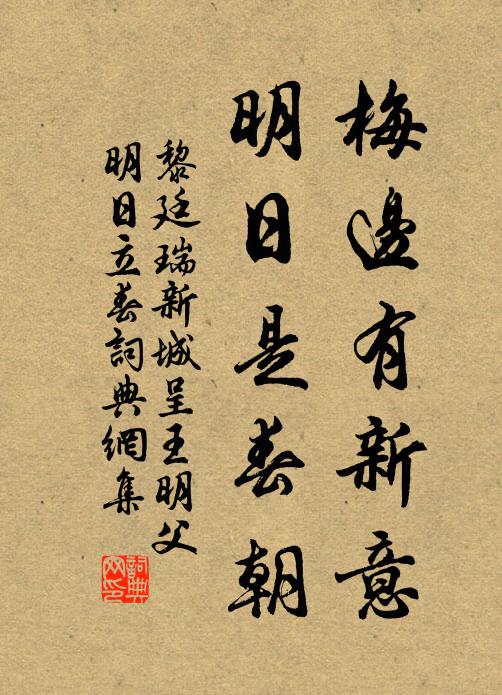 梅邊有新意
明日是春朝
黎廷瑞新城呈王明父
明日立春詞典網集
詞典
网印